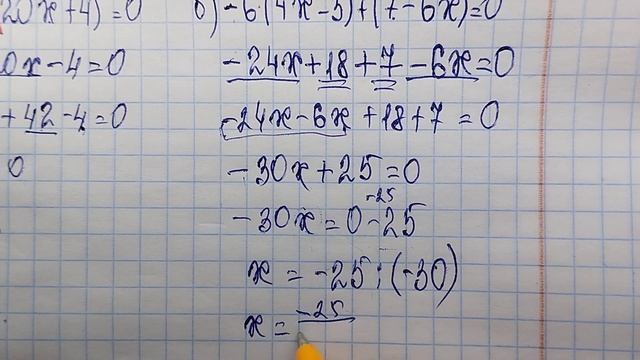 20x+4)=0
0x-4=0
+42-4=0
0
б)-6(4x-3)+(7-6x)=0
-24x+18+7-6x=0
-24x-6x+18+7=0
-30x+25=0
-25
-30x=0-25
x=-25:(-30)
x=-25